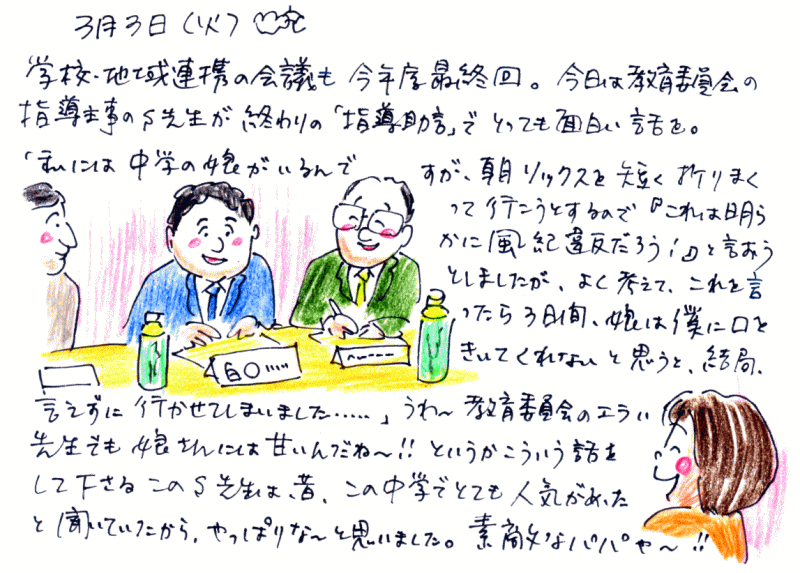 3月3日（火）
学校・地域連携の会議も今年度最終回。今日は教育委員会の
指導主事のS先生が終わりの「指導助言」でとっても面白い話を。
「私には中学の娘がいるんで
すが、朝ソックスを短く折りまく
って行こうとするので『これは明ら
かに風紀違反だろう！』と言おう
としましたが、よく考えて、これを言
ったら3日間、娘は僕に口を
きいてくれないと思うと、結局、
言えずに行かせてしまいました……」うわ〜教育委員会のエラい
先生でも娘さんには甘いんだね〜!! というかこういう話を
して下さるこのS先生は、昔、この中学でとても人気があった
と聞いていたから、やっぱりな〜と思いました。素敵なパパや〜!!